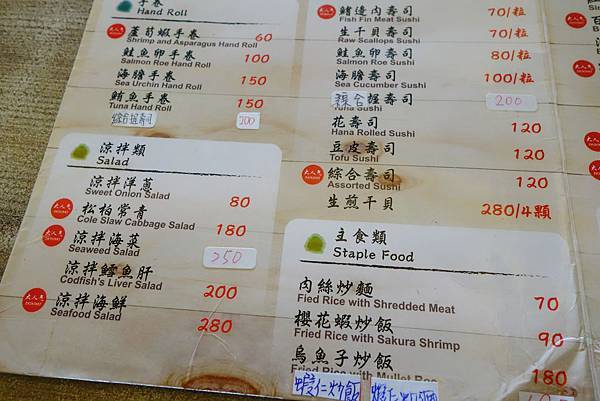 手卷
Hand Roll
大人氣 蘆筍蝦手卷 60
Shrimp and Asparagus Hand Roll
鮭魚卵手卷 100
Salmon Roe Hand Roll
海膽手卷 150
Sea Urchin Hand Roll
鮪魚手卷 150
Tuna Hand Roll
綜合握壽司 200
涼拌類
Salad
涼拌洋蔥 80
Sweet Onion Salad
大人氣 松柏常青 180
Cole Slaw Cabbage Salad
大人氣 涼拌海菜 250
Seaweed Salad
涼拌鱈魚肝 200
Codfish's Liver Salad
大人氣 涼拌海鮮 280
Seafood Salad
鰭邊肉壽司 70/粒
Fish Fin Meat Sushi
大人氣 生干貝壽司 70/粒
Raw Scallops Sushi
鮭魚卵壽司 80/粒
Salmon Roe Sushi
海膽壽司 100/粒
Sea Cucumber Sushi
綜合握壽司 200
Tuna Sushi
花壽司 120
Hana Rolled Sushi
豆皮壽司 120
Tofu Sushi
大人氣 綜合壽司 120
Assorted Sushi
生煎干貝 280/4顆
主食類
Staple Food
肉絲炒麵 70
Fied Rice with Shredded Meat
櫻花蝦炒飯 90
Fried Rice with Sakura Shrimp
烏魚子炒飯 180
Fried Rice with Mullet Roe
蝦仁炒飯